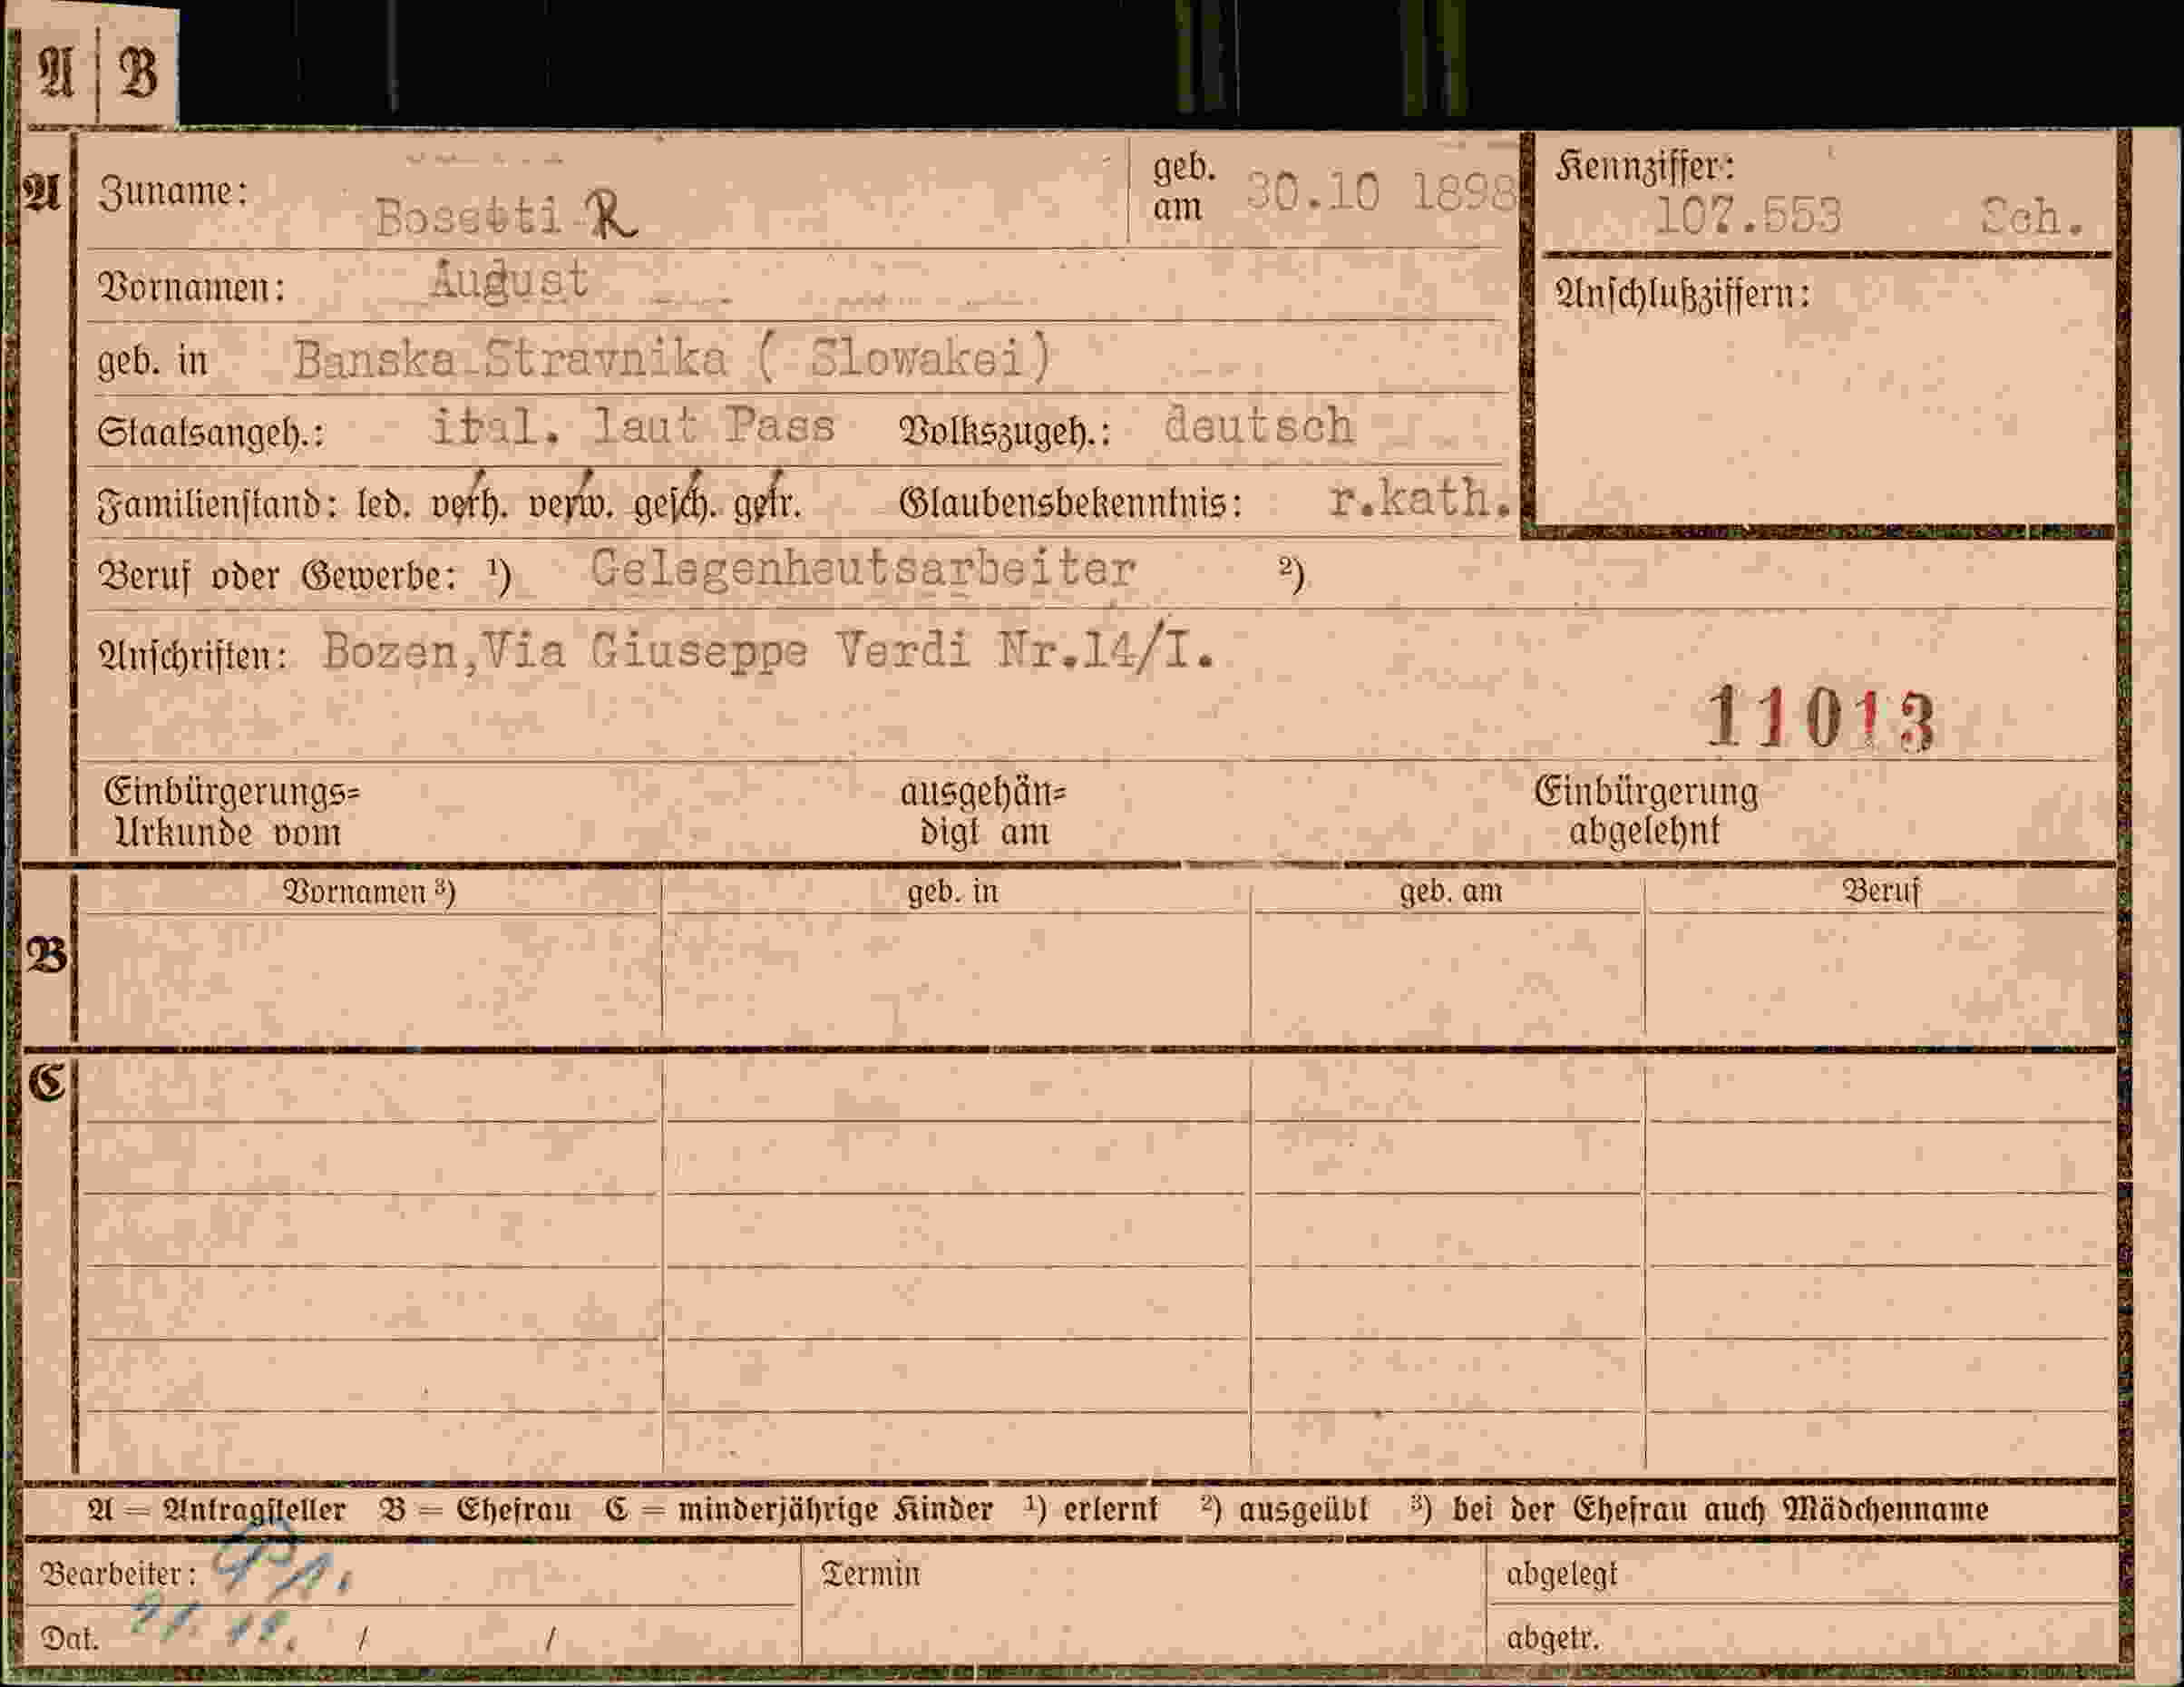 A | B
A Zuname: Bosetti R geb. am 30.10 1898 Kennziffer: 107.553 Sch.
Vornamen: August Anschlußziffern:
geb. in Banska Stravnika ( Slowakei)
Staatsangeh.: ital. laut Pass Volkszugeh.: deutsch
Familienstand: led. verh. verw. gesch. getr. Glaubensbekenntnis: r.kath.
Beruf oder Gewerbe: ¹) Gelegenheutsarbeiter ²)
Anschriften: Bozen,Via Giuseppe Verdi Nr.14/I.
11013
Einbürgerungs= ausgehän= Einbürgerung
Urkunde vom digt am abgelehnt
Vornamen ³) geb. in geb. am Beruf
B
C
A = Antragsteller B = Ehefrau C = minderjährige Kinder ¹) erlernt ²) ausgeübt ³) bei der Ehefrau auch Mädchenname
Bearbeiter: Termin abgelegt
Dat. / / abgetr.